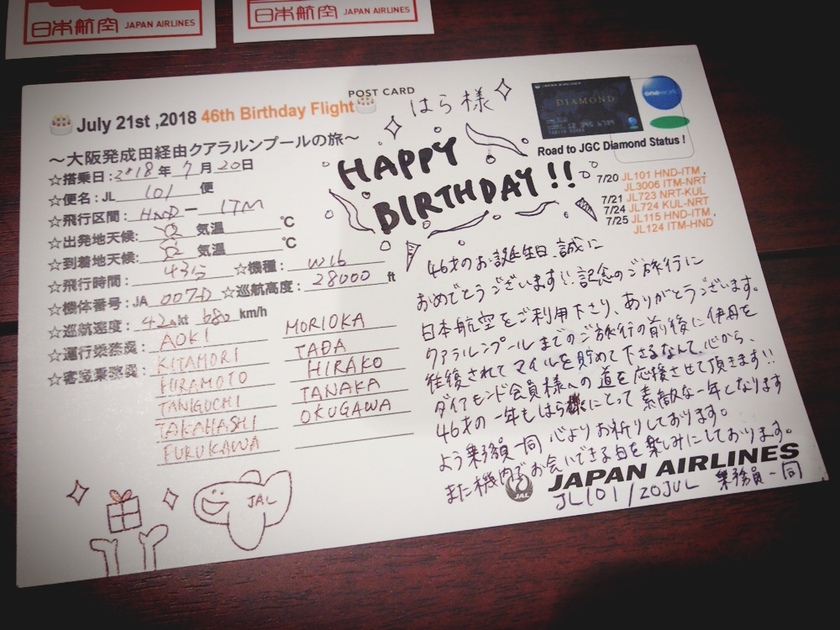 日本航空 JAPAN AIRLINES
日本航空 JAPAN AIRLINES
POST CARD
July 21st ,2018 46th Birthday Flight
～大阪発成田経由クアラルンプールの旅～
☆搭乗日:2018年 7月20日
☆便名: JL 101 便
☆飛行区間: HND － ITM
☆出発地天候: 気温 ℃
☆到着地天候: 気温 ℃
☆飛行時間: 43分 ☆機種: W16
☆機体番号: JA 007D ☆巡航高度: 28000 ft
☆巡航速度: 42 kt 680 km/h
☆運行乗務員: AOKI
KITAMORI
☆客室乗務員: HIRAMOTO
TANIGUCHI
TAKAHASHI
FURUKAWA
MORIOKA
TADA
HIRAKO
TANAKA
OKUGAWA
JAL
はら様
HAPPY
BIRTHDAY!!
JAPAN AIRLINES
DIAMOND
Road to JGC Diamond Status !
7/20 JL101 HND-ITM
JL3006 ITM-NRT
7/21 JL723 NRT-KUL
7/24 JL724 KUL-NRT
7/25 JL115 HND-ITM
JL124 ITM-HND
46才のお誕生日、誠に
おめでとうございます!! 記念のご旅行に
日本航空をご利用下さり、ありがとうございます。
クアラルンプールまでのご旅行の前後に伊丹を
往復されてマイルを貯めて下さるなんて、心から、
ダイアモンド会員様への道を応援させて頂きます!!
46才の一年もはら様にとって素敵な一年となります
よう乗務員一同 心よりお祈りしております。
また機内でお会いできる日を楽しみにしております。
JAL JAPAN AIRLINES
JL101/20JUL 乗務員一同